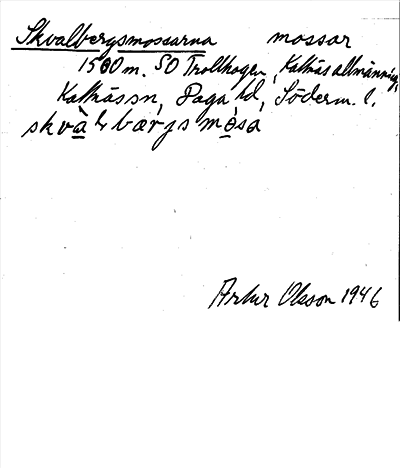 Skvalbergsmossarna mossar
1500 m. SO Trollhagen, Kattnäs allmänning,
Kattnässn, Daga hd, Söderm. l.
skvàlbærjsmosa
Artur Olsson 1946